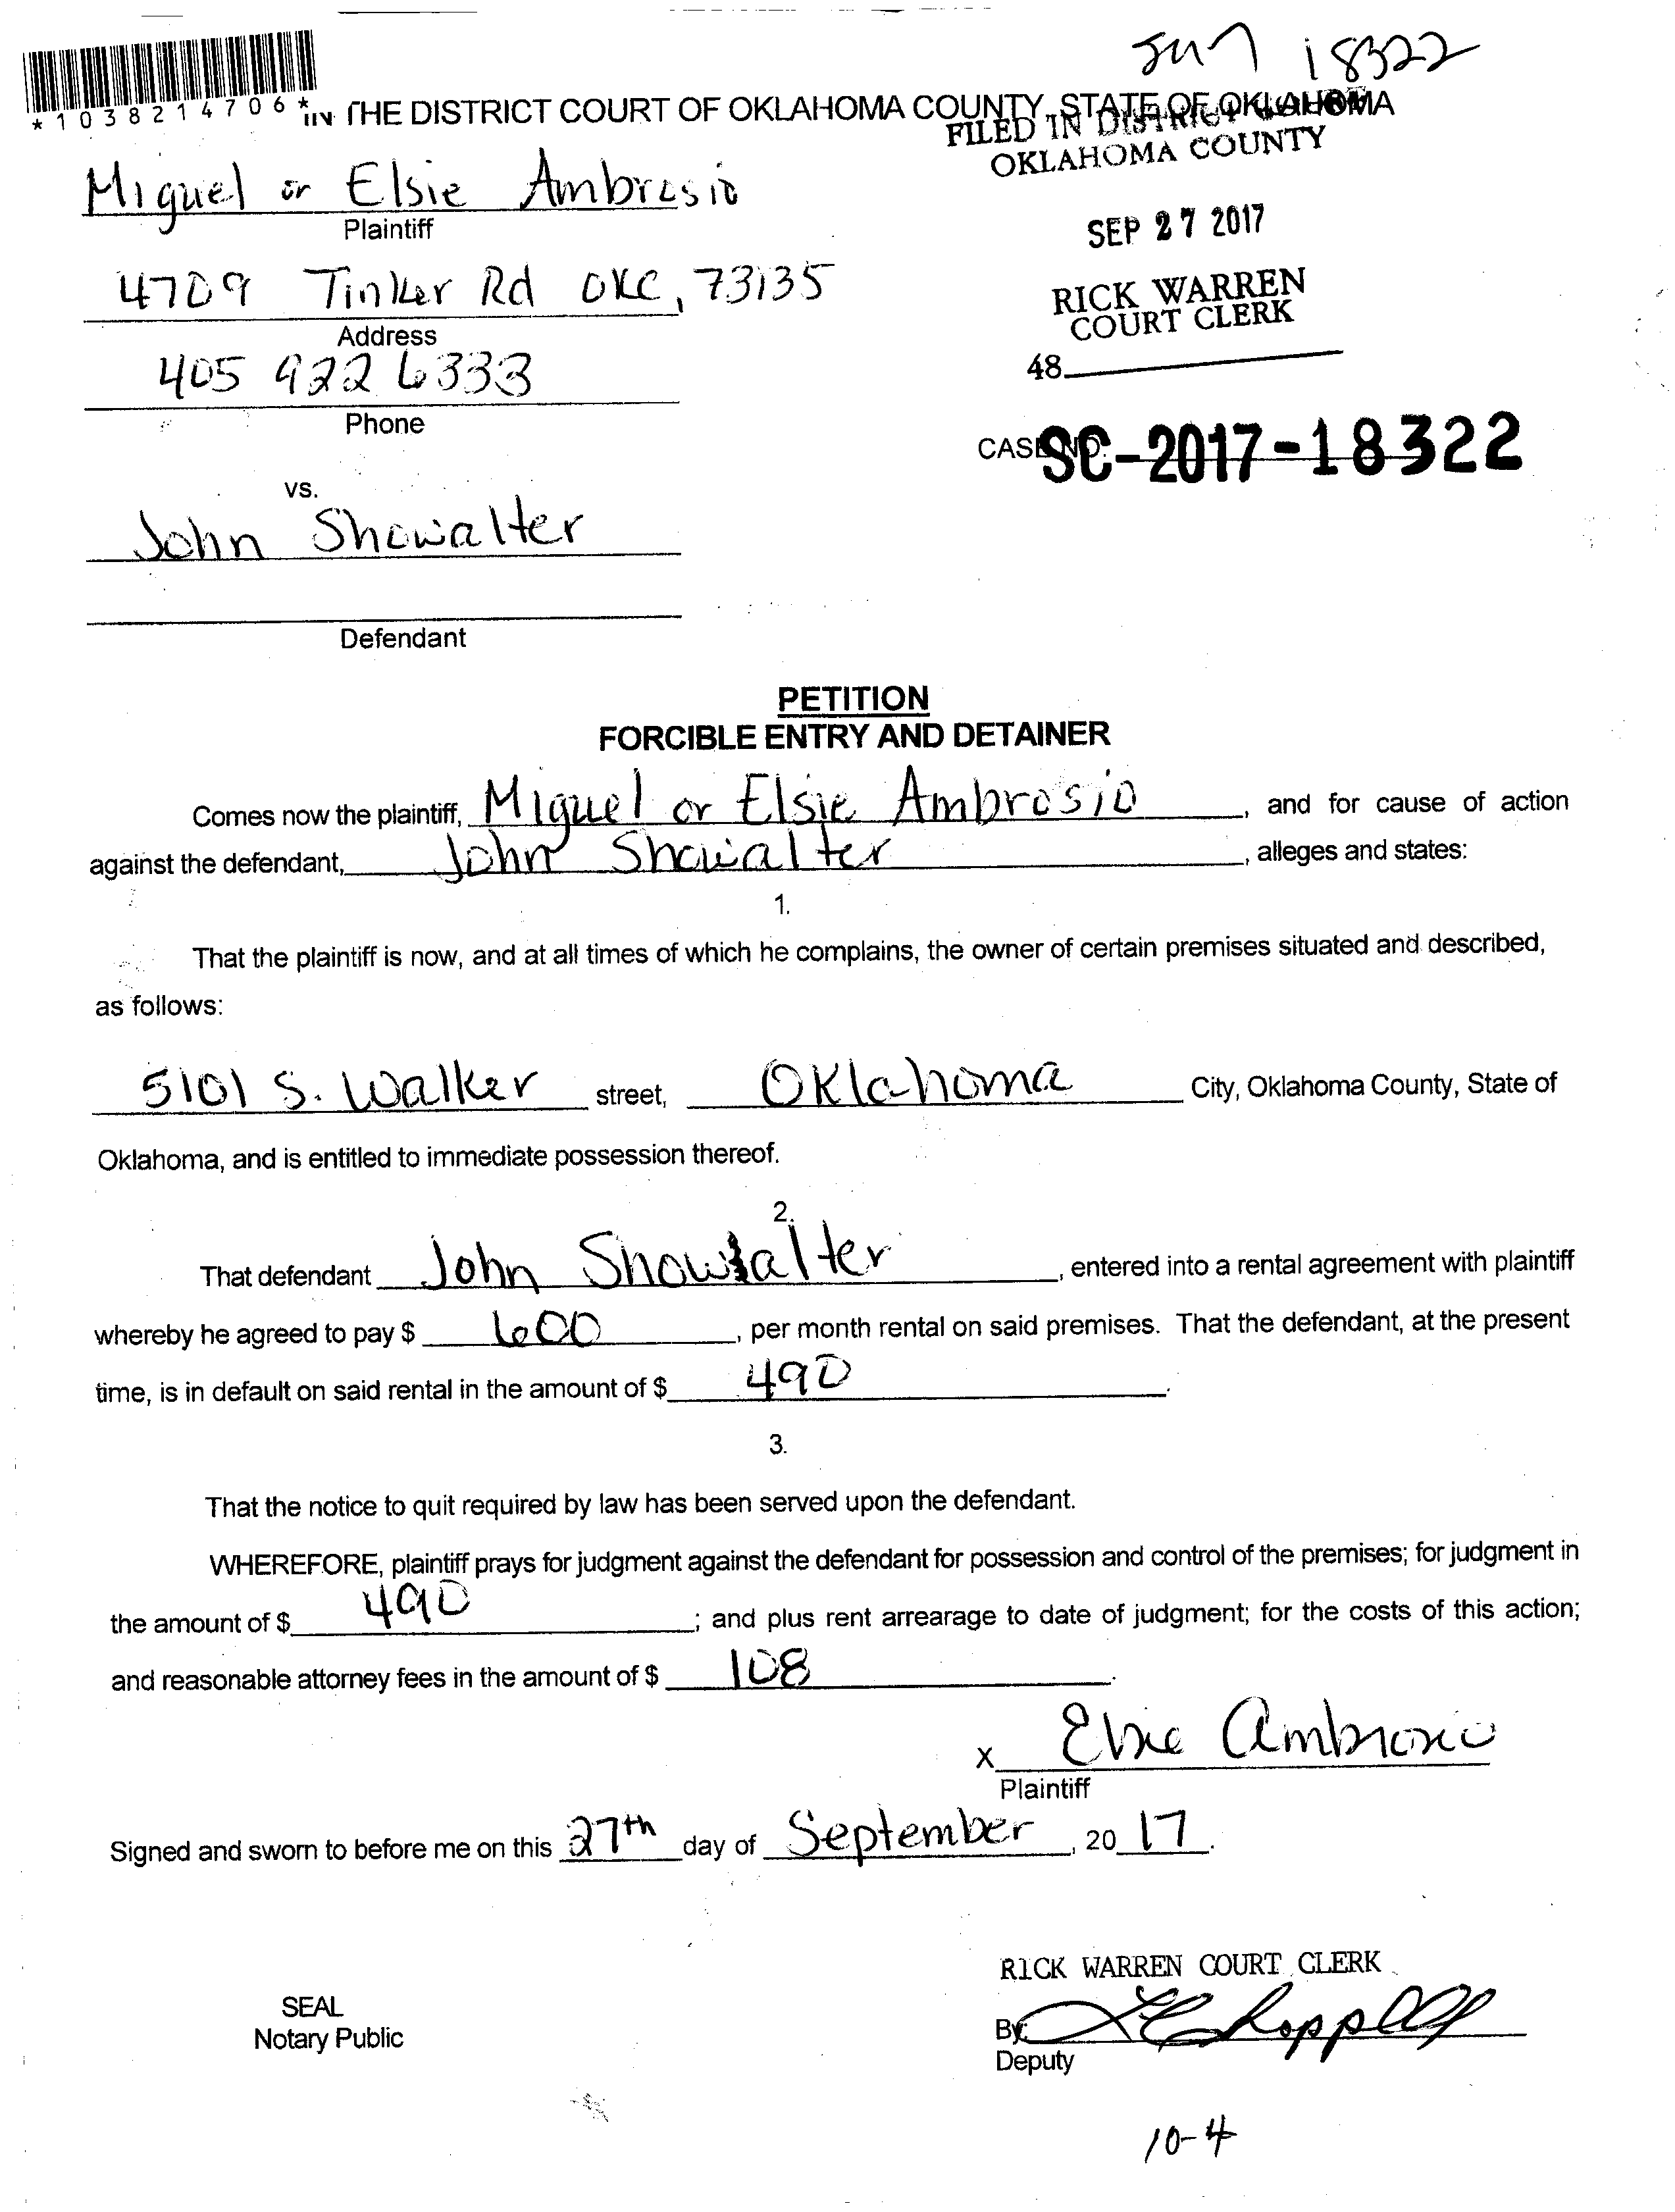 SM7 18322
*1038214706*
IN THE DISTRICT COURT OF OKLAHOMA COUNTY, STATE OF OKLAHOMA
FILED IN DISTRICT COURT
OKLAHOMA COUNTY
Miguel or Elsie Ambrosio
Plaintiff
SEP 27 2017
4709 Tinker Rd OKC, 73135
Address
RICK WARREN
COURT CLERK
405 922 6333
Phone
48
CASE NO. SC-2017-18322
vs.
John Showalter
Defendant
PETITION
FORCIBLE ENTRY AND DETAINER
Comes now the plaintiff, Miguel or Elsie Ambrosio, and for cause of action
against the defendant, John Showalter, alleges and states:
1.
That the plaintiff is now, and at all times of which he complains, the owner of certain premises situated and described,
as follows:
5101 S. Walker street, Oklahoma City, Oklahoma County, State of
Oklahoma, and is entitled to immediate possession thereof.
2.
That defendant John Showalter, entered into a rental agreement with plaintiff
whereby he agreed to pay $ 600, per month rental on said premises. That the defendant, at the present
time, is in default on said rental in the amount of $ 490.
3.
That the notice to quit required by law has been served upon the defendant.
WHEREFORE, plaintiff prays for judgment against the defendant for possession and control of the premises; for judgment in
the amount of $ 490; and plus rent arrearage to date of judgment; for the costs of this action;
and reasonable attorney fees in the amount of $ 108.
X Elsie Ambrosio
Plaintiff
Signed and sworn to before me on this 27th day of September, 20 17.
RICK WARREN COURT CLERK
SEAL
Notary Public
By:
Deputy
10-4